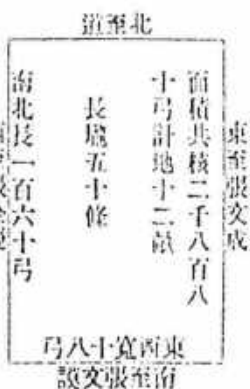 北至道
東至張文成
面積共核二千八百八
十弓計地十二畝
長壠五十條
南北長一百六十弓
東西寬十八弓
南至張文